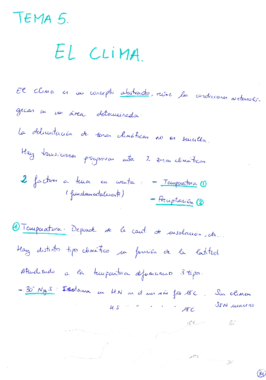 TEMA 5.
EL CLIMA.
El clima es un concepto abstracto, reúne las condiciones meteoroló-
gicas en un área determinada.
La delimitación de zonas climáticas no es sencilla.
Hay transiciones progresivas entre 2 zonas climáticas
2 factores a tener en cuenta: - Temperatura ①
(fundamentalmente) - Precipitación ②
① Temperatura: Depende de la cant. de insolación, etc.
Hay distintos tipos climáticos en función de la latitud
Atendiendo a la temperatura diferenciamos 3 tipos.
- 30° N y S: en HN es el más frío 15°C. Sin
HS " " " " 15°C SIN